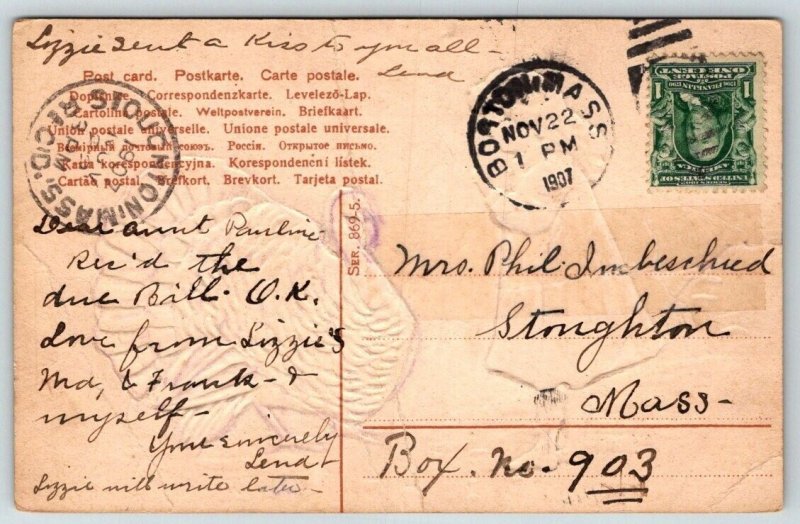 Lizzie sent a Kiss to you all -
Lend
Post card. Postkarte. Carte postale.
Correspondenzkarte. Levelező-Lap.
Cartolina postale. Weltpostverein. Briefkaart.
Union postale universelle. Unione postale universale.
Всемірный почтовый союзъ. Россія. Открытое письмо.
Karta korespondencyjna. Korespondenční lístek.
Cartão postal. Brefkort. Brevkort. Tarjeta postal.
STOUGHTON, MASS.
REC'D.
BOSTON, MASS
NOV 22
1 PM
1907
SER. 869-5.
Dear aunt Pauline
Rec'd the
due Bill. O.K.
Love from Lizzie's
Md, & Frank - &
myself -
Your sincerely
Lend
Lizzie will write later -
Mrs. Phil Imbeschied
Stoughton
Mass -
Box. No. 903